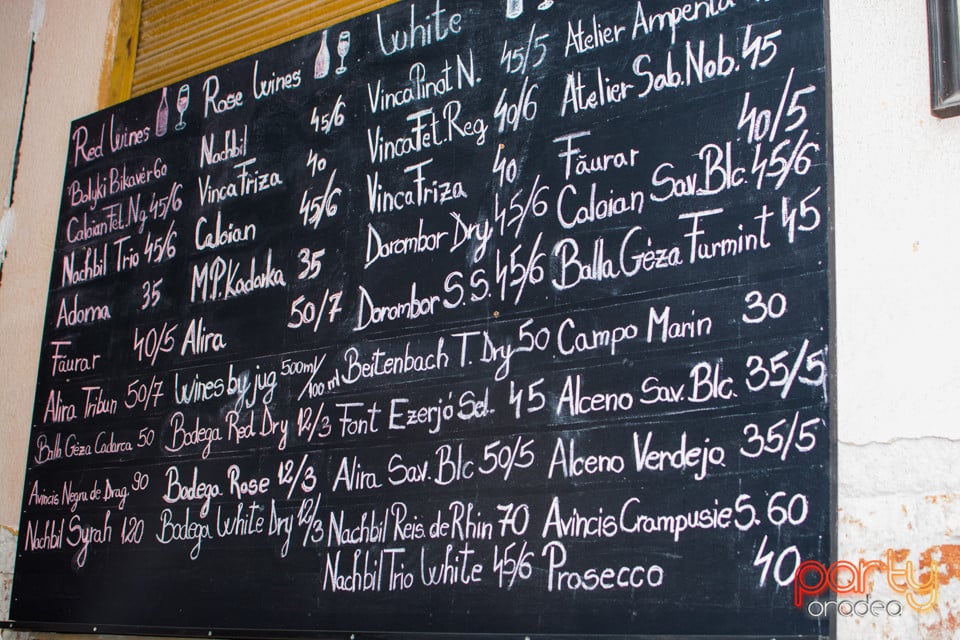 Red Wines
Bolyki Bikavér 60
Caloian Fet. Ng. 45/6
Nachbil Trio 45/6
Adorna 35
Făurar 40/5
Alira Tribun 50/7
Balla Géza Cadarca 50
Avincis Negru de Drag. 90
Nachbil Syrah 120
Rose Wines
Nachbil 45/6
Vinca Friza 40
Caloian 45/6
M.P. Kadarka 35
Alira 50/7
Wines by jug 500ml/100ml
Bodega Red Dry 12/3
Bodega Rose 12/3
Bodega White Dry 12/3
White
Vinca Pinot N. 45/5
Vinca Fet. Reg 40/6
Vinca Friza 40
Dorombor Dry 45/6
Dorombor S.S. 45/6
Beitenbach T. Dry 50
Font Ezerjó Sel. 45
Alira Sav. Blc 50/5
Nachbil Reis. de Rhin 70
Nachbil Trio White 45/6
Atelier Ampenta
Atelier Sab. Nob. 45
Făurar 40/5
Caloian Sav. Blc. 45/6
Balla Géza Furmint 45
Campo Marin 30
Alceno Sav. Blc. 35/5
Alceno Verdejo 35/5
Avincis Crampusie S. 60
Prosecco 40
party
oradea